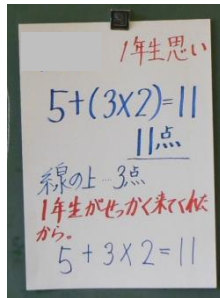 1年生思い
5+(3×2)=11
11点
線の上…3点
1年生がせっかく来てくれた
から。
5+3×2=11